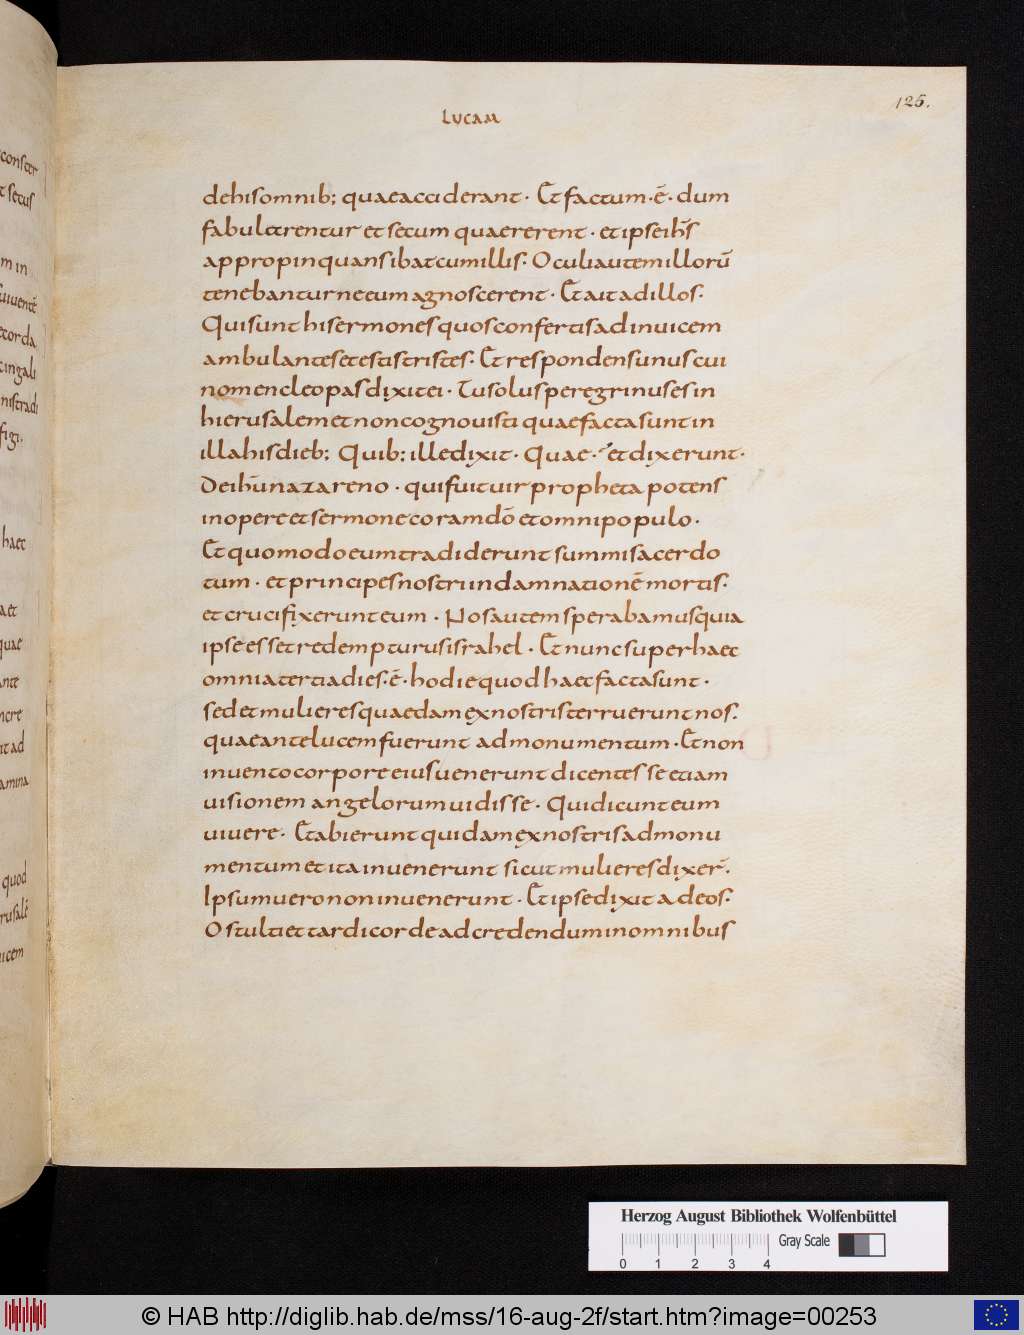 LUCAM
125.
dehisomnib; quaeacciderant · Et factum · ē · dum
fabularentur et secum quaererent · et ipse ihs̄
appropinquans ibat cum illis · Oculi autem illorū
tenebantur ne eum agnoscerent · Et ait ad illos ·
Qui sunt hi sermones quos confertis ad inuicem
ambulantes et estis tristes · Et respondens unus cui
nomen cleopas dixit ei · Tu solus peregrinus es in
hierusalem et non cognouisti quae facta sunt in
illa his dieb; Quib; ille dixit · Quae · et dixerunt ·
De ihū nazareno · qui fuit uir propheta potens
in opere et sermone coram dō et omni populo ·
Et quomodo eum tradiderunt summi sacerdo
tum · et principes nostri in damnationē mortis ·
et crucifixerunt eum · Nos autem sperabamus quia
ipse esset redempturus israhel · Et nunc super haec
omnia tertia dies · ē · hodie quod haec facta sunt ·
sed et mulieres quaedam ex nostris terruerunt nos ·
quae ante lucem fuerunt ad monumentum · Et non
inuento corpore eius uenerunt dicentes se etiam
uisionem angelorum uidisse · Qui dicunt eum
uiuere · Et abierunt quidam ex nostris ad monu
mentum et ita inuenerunt sicut mulieres dixer̄ ·
Ipsum uero non inuenerunt · Et ipse dixit ad eos ·
O stulti et tardi corde ad credendum in omnibus
Herzog August Bibliothek Wolfenbüttel
Gray Scale
0 1 2 3 4
© HAB http://diglib.hab.de/mss/16-aug-2f/start.htm?image=00253